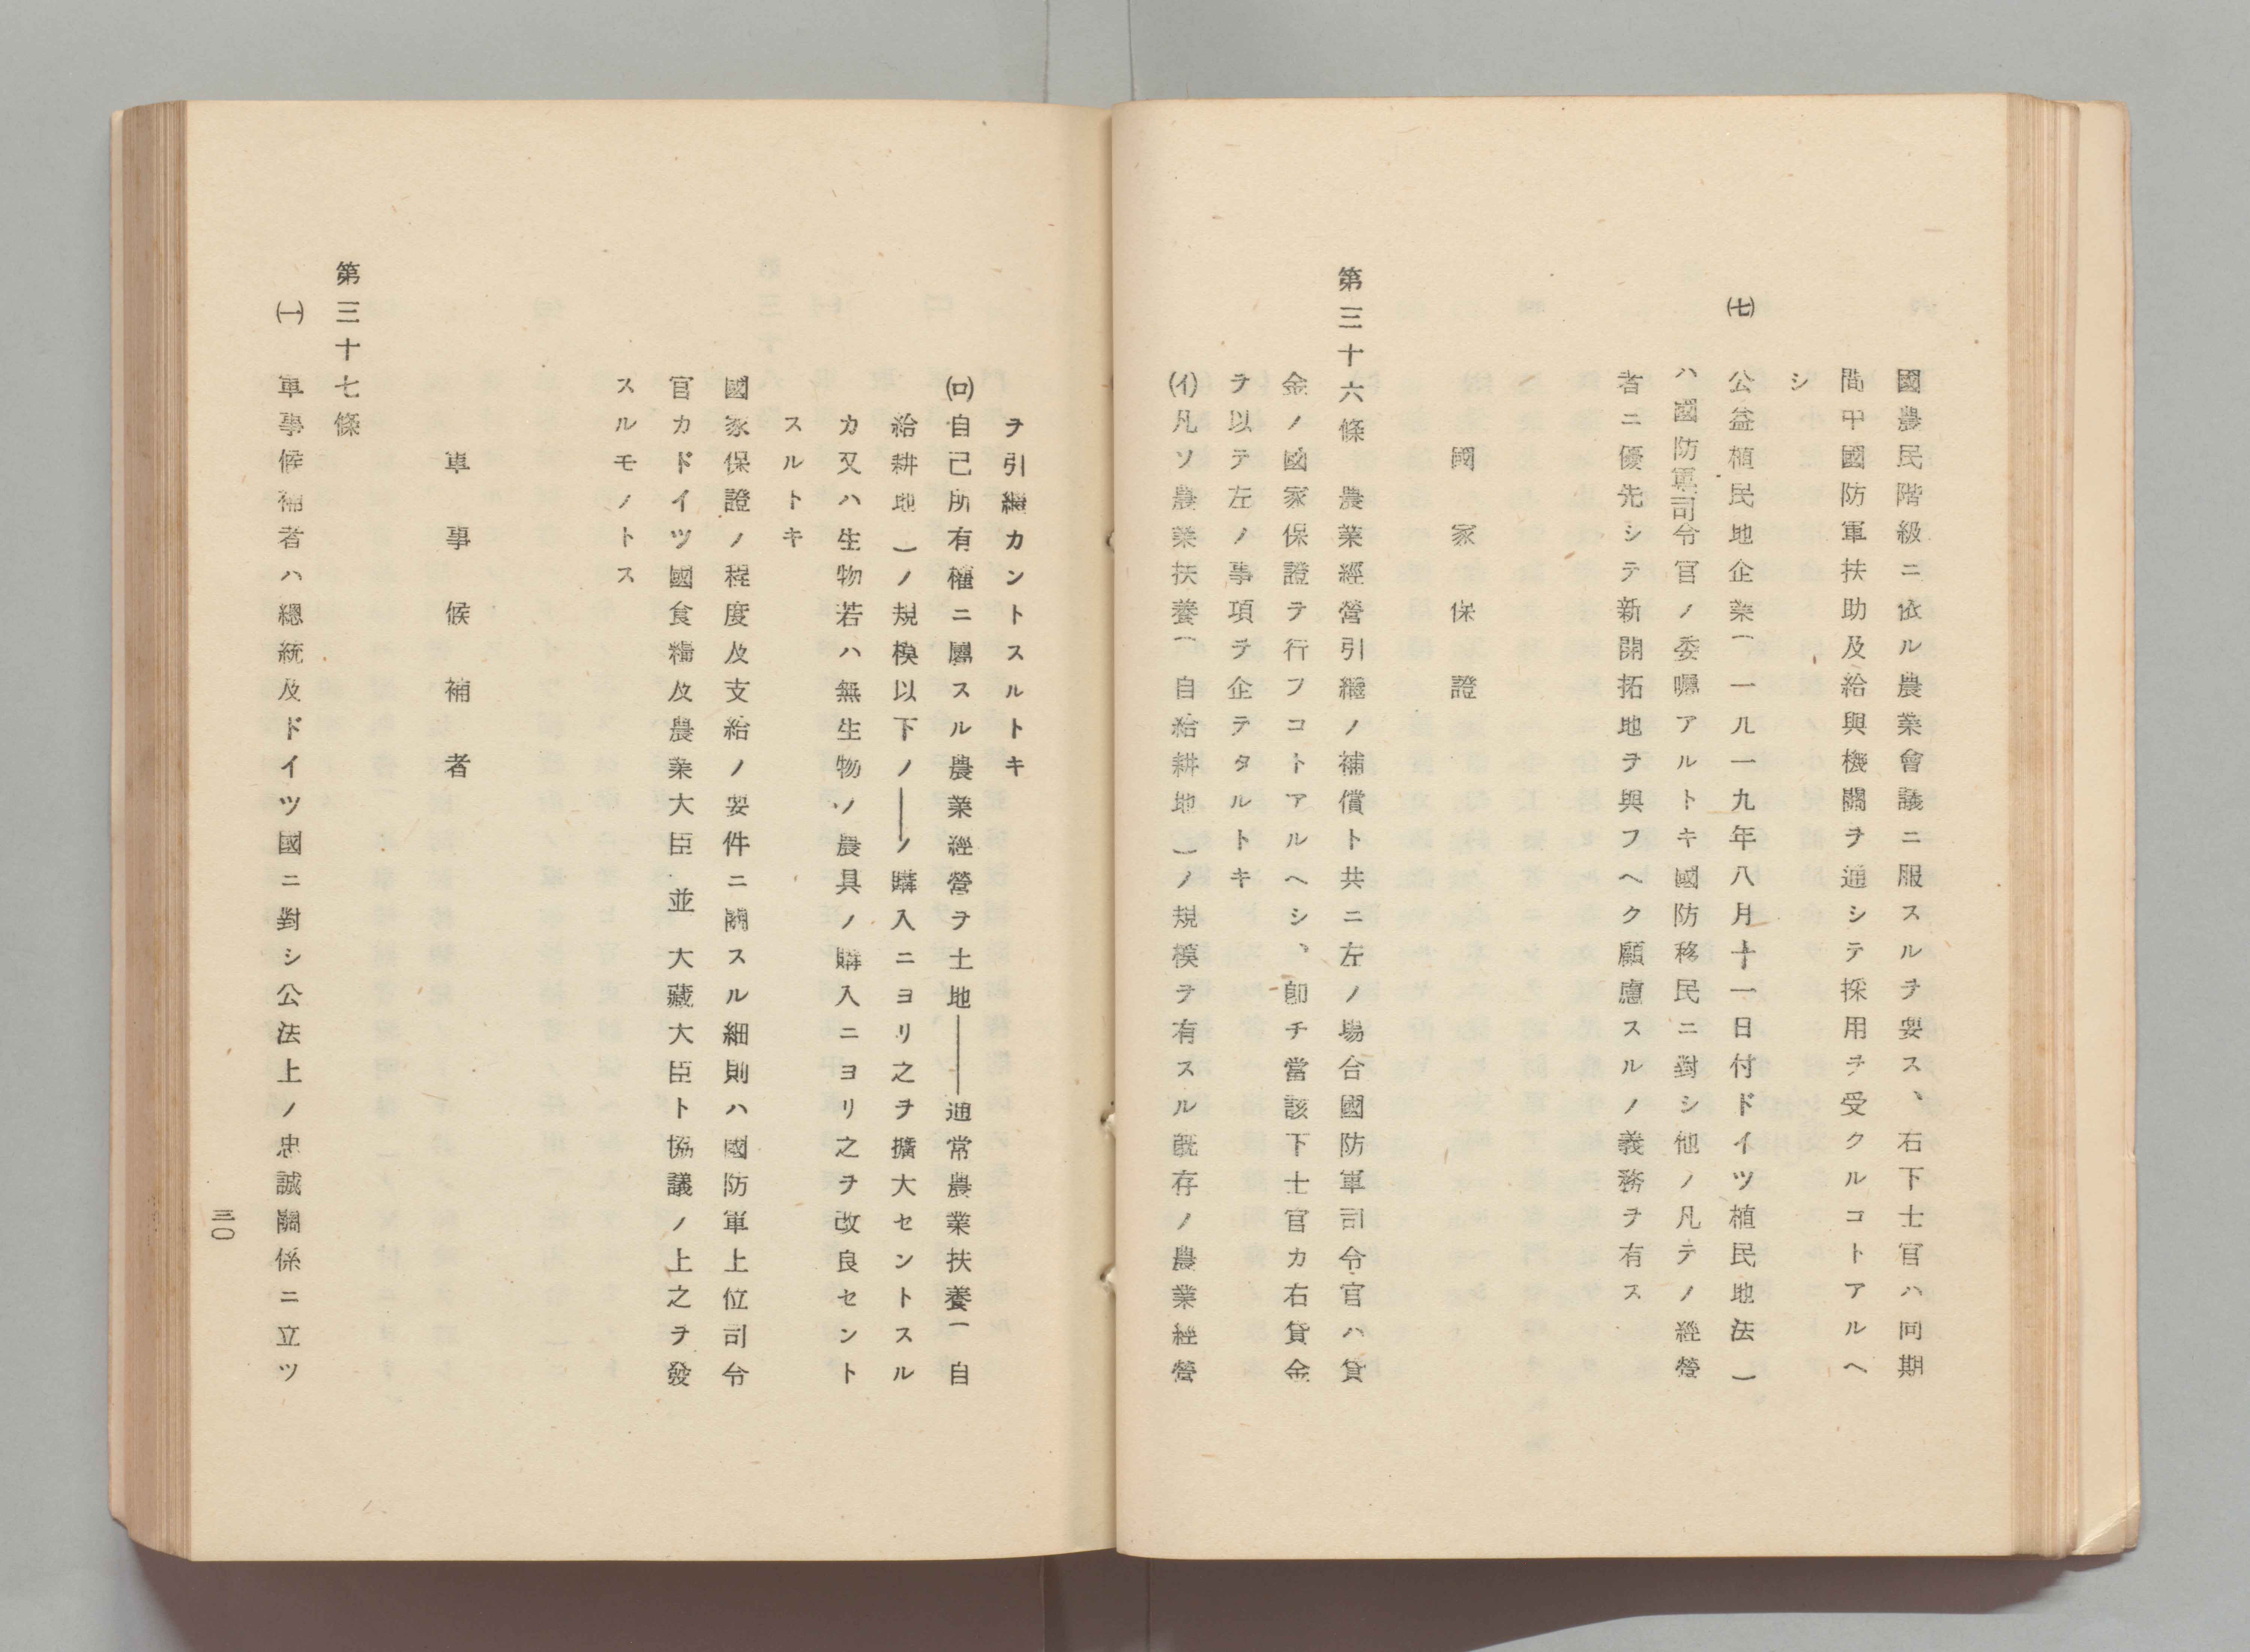 國農民階級ニ依ル農業會議ニ服スルヲ要ス、右下士官ハ同期
間甲國防軍扶助及給與機關ヲ通シテ採用ヲ受クルコトアルヘ
シ
㈦　公益植民地企業(一九一九年八月十一日付ドイツ植民地法)
ハ國防軍司令官ノ委囑アルトキ國防移民ニ對シ他ノ凡テノ經營
者ニ優先シテ新開拓地ヲ與フヘク願慮スルノ義務ヲ有ス
國家保證
第三十六條　農業經營引繼ノ補償ト共ニ左ノ場合國防軍司令官ハ貸
金ノ國家保證ヲ行フコトアルヘシ、卽チ當該下士官カ右貸金
ヲ以テ左ノ事項ヲ企テタルトキ
(イ)凡ソ農業扶養(自給耕地)ノ規模ヲ有スル既存ノ農業經營
ヲ引繼カントスルトキ
(ロ)自己所有權ニ屬スル農業經營ヲ土地——通常農業扶養(自
給耕地)ノ規模以下ノ——ノ購入ニヨリ之ヲ擴大セントスル
カ又ハ生物若ハ無生物ノ農具ノ購入ニヨリ之ヲ改良セント
スルトキ
國家保證ノ程度及支給ノ要件ニ關スル細則ハ國防軍上位司令
官カドイツ國食糧及農業大臣並大藏大臣ト協議ノ上之ヲ發
スルモノトス
軍事候補者
第三十七條
㈠　軍事候補者ハ總統及ドイツ國ニ對シ公法上ノ忠誠關係ニ立ツ
三〇